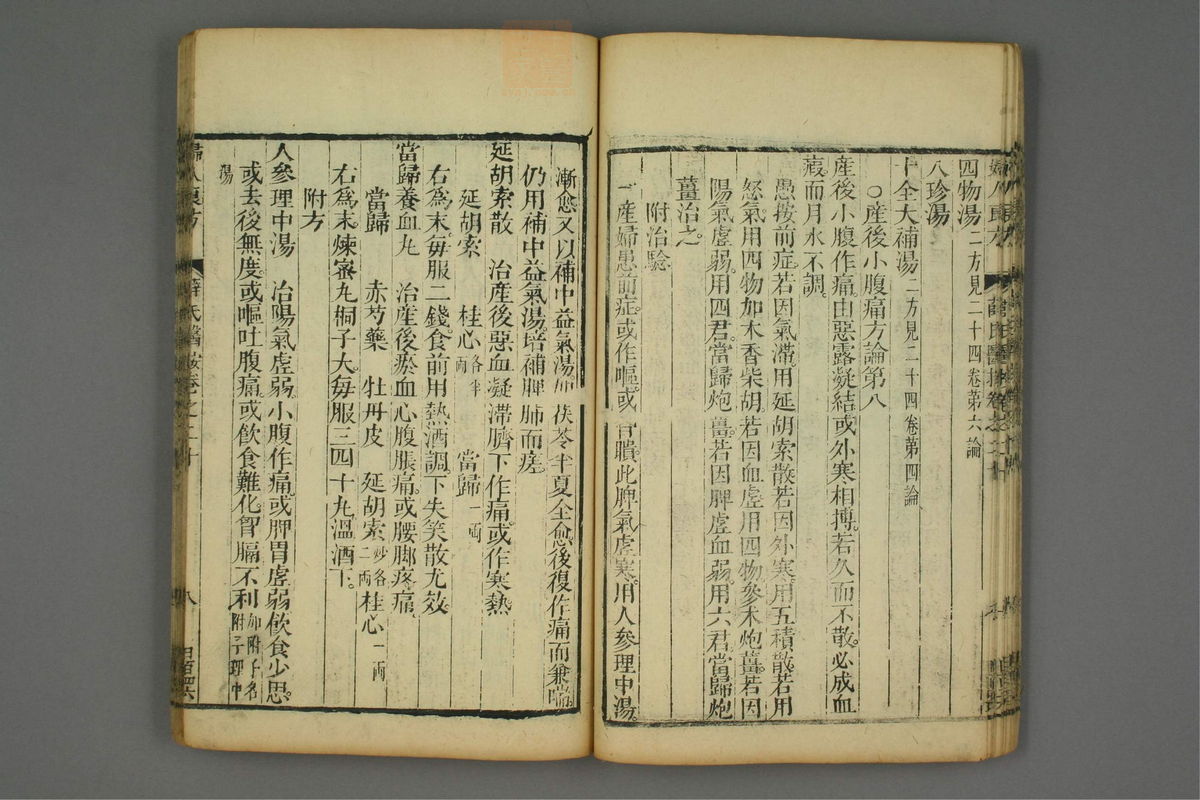 四物湯二方見二十四卷第六論
八珍湯
十全大補湯二方見二十四卷第四論
○產後小腹痛方論第八
產後小腹作痛由惡露凝結或外寒相搏若久而不散必成血
瘕而月水不調
愚按前症若因氣滯用延胡索散若因外寒用五積散若用
怒氣用四物加木香柴胡若因血虛用四物參朮炮薑若因
陽氣虛弱用四君當歸炮薑若因脾虛血弱用六君當歸炮
薑治之
附治驗
一產婦患前症或作嘔或昏瞶此脾氣虛寒用人參理中湯
漸愈又以補中益氣湯加茯苓半夏全愈後復作痛而兼喘
仍用補中益氣湯培補脾肺而瘥
延胡索散 治產後惡血凝滯臍下作痛或作寒熱
延胡索 桂心各半兩 當歸一兩
右為末每服二錢食前用熱酒調下失笑散尤效
當歸養血丸 治產後瘀血心腹脹痛或腰脚疼痛
當歸 赤芍藥 牡丹皮 延胡索炒各二兩 桂心一兩
右為末煉蜜丸桐子大每服三四十丸溫酒下
附方
人參理中湯 治陽氣虛弱小腹作痛或脾胃虛弱飲食少思
或去後無度或嘔吐腹痛或飲食難化胷膈不利加附子名附子理中
湯